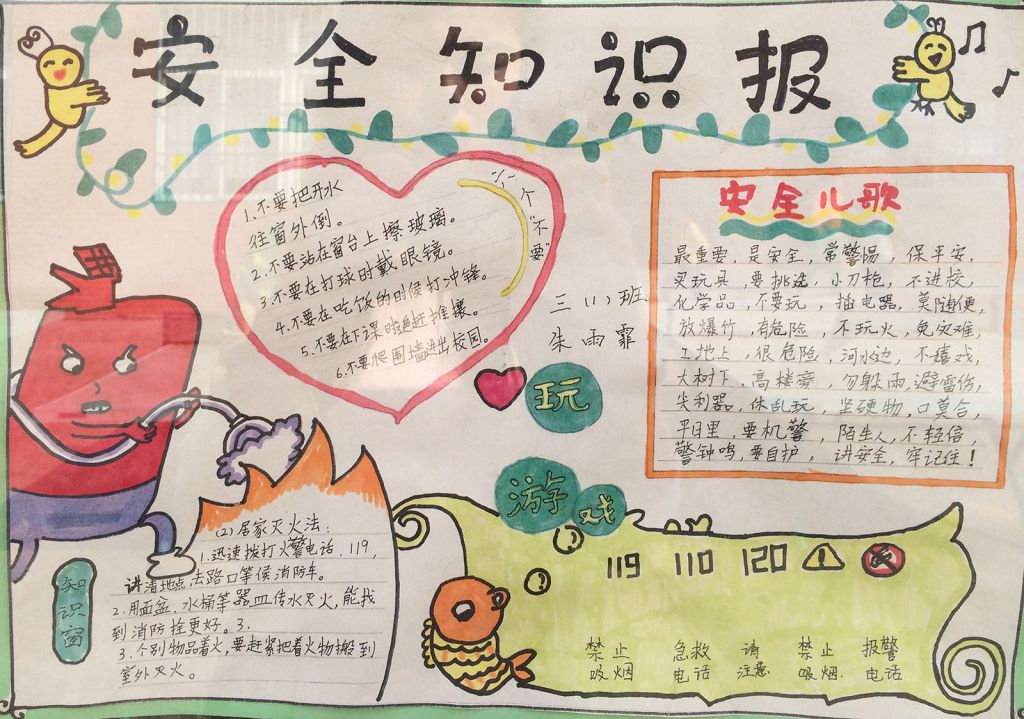 安全知识报
1.不要把开水
往窗外倒。
2.不要站在窗台上擦玻璃。
3.不要在打球时戴眼镜。
4.不要在吃饭的时候打冲锋。
5.不要在下课时追赶推攘。
6.不要爬围墙进出校园。
六个"不要"
三(1)班
朱雨霏
安全儿歌
最重要,是安全,常警惕,保平安,
买玩具,要挑选,小刀枪,不进校,
化学品,不要玩,插电器,莫随便,
放爆竹,有危险,不玩火,免灾难,
工地上,很危险,河水边,不嬉戏,
大树下,高楼旁,勿躲雨,避雷伤,
尖利器,休乱玩,坚硬物,口莫含,
平日里,要机警,陌生人,不轻信,
警钟鸣,要自护,讲安全,牢记住!
玩
游戏
知识窗
(2)居家灭火法:
1.迅速拨打火警电话.119,
讲清地点,去路口等候消防车。
2.用面盆.水桶等器皿传水灭火,能找
到消防拴更好。3.
3.个别物品着火,要赶紧把着火物搬到
室外灭火。
119 110 120
禁止 急救 请 禁止 报警
吸烟 电话 注意 吸烟 电话